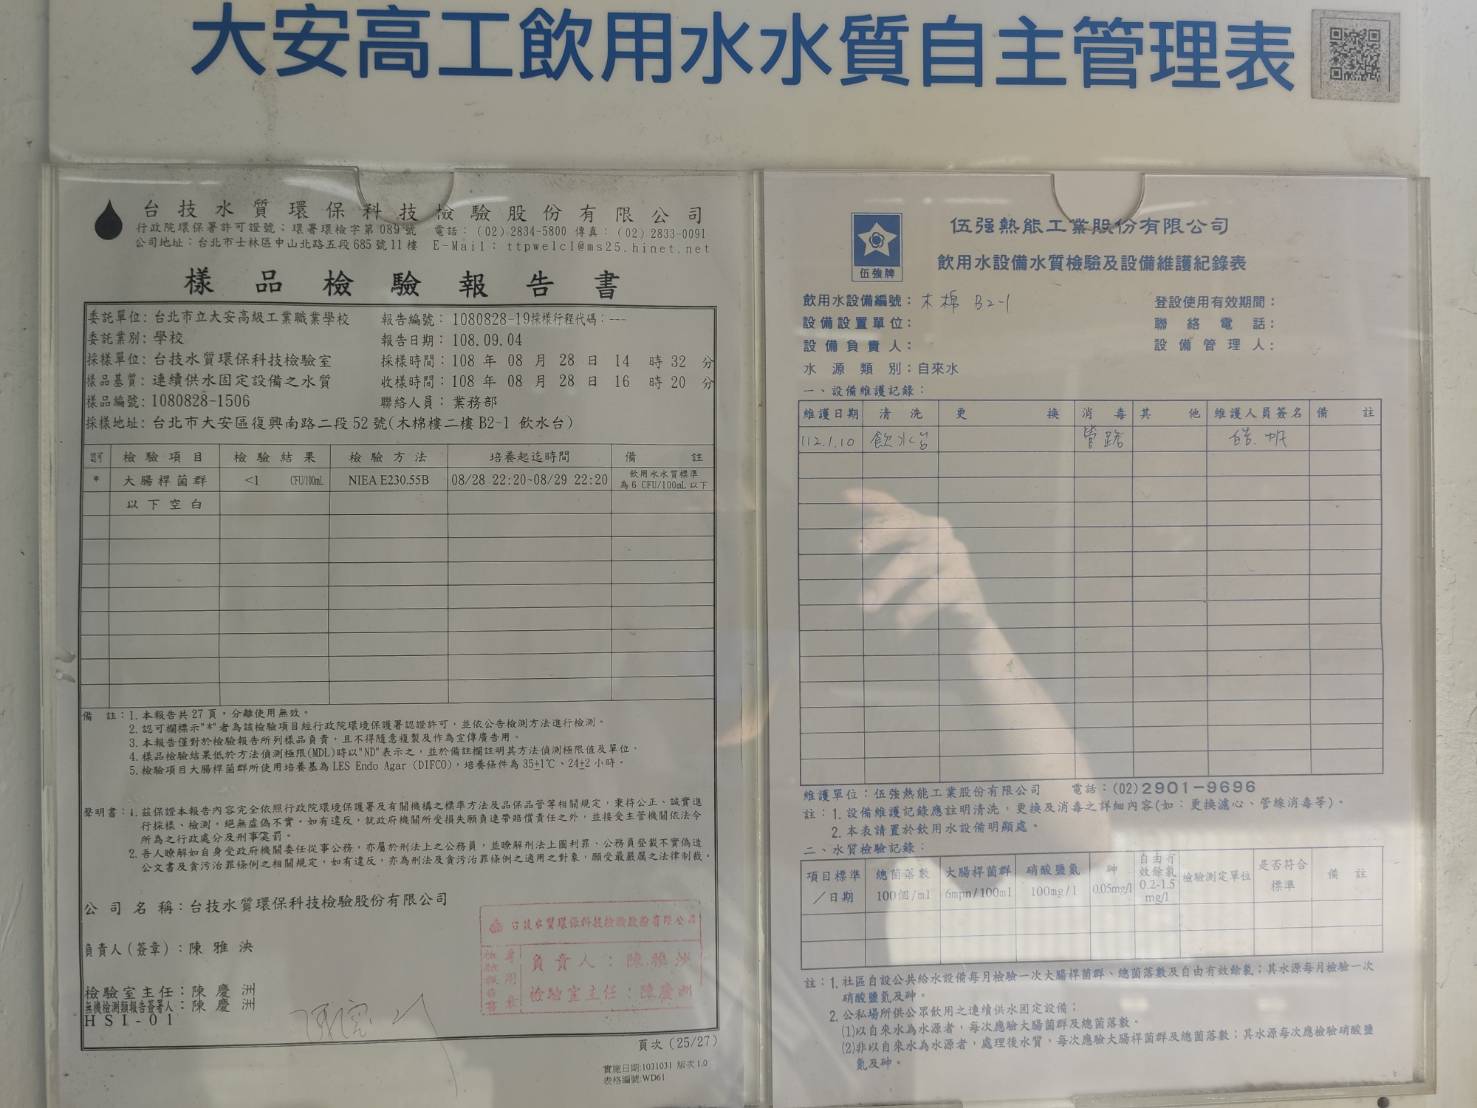 大安高工飲用水水質自主管理表
台技水質環保科技檢驗股份有限公司
行政院環保署許可證號：環署環檢字第089號 電話：(02)2834-5800 傳真：(02)2833-0091
公司地址：台北市士林區中山北路五段685號11樓 E-Mail：ttpwelcl@ms25.hinet.net
樣品檢驗報告書
委託單位：台北市立大安高級工業職業學校 報告編號：1080828-19採樣行程代碼：---
委託業別：學校 報告日期：108.09.04
採樣單位：台技水質環保科技檢驗室 採樣時間：108 年 08 月 28 日 14 時 32 分
樣品基質：連續供水固定設備之水質 收樣時間：108 年 08 月 28 日 16 時 20 分
樣品編號：1080828-1506 聯絡人員：業務部
採樣地址：台北市大安區復興南路二段52號(木棉樓二樓B2-1 飲水台)
認可 檢驗項目 檢驗結果 檢驗方法 培養起迄時間 備 註
* 大腸桿菌群 <1 CFU/100mL NIEA E230.55B 08/28 22:20~08/29 22:20 飲用水水質標準為6 CFU/100mL以下
以下空白
備 註：1.本報告共27頁，分離使用無效。
2.認可欄標示"*"者為該檢驗項目經行政院環境保護署認證許可，並依公告檢測方法進行檢測。
3.本報告僅對於檢驗報告所列樣品負責，且不得隨意複製及作為宣傳廣告用。
4.樣品檢驗結果低於方法偵測極限(MDL)時以"ND"表示之，並於備註欄註明其方法偵測極限值及單位。
5.檢驗項目大腸桿菌群所使用培養基為LES Endo Agar (DIFCO)，培養條件為35±1℃、24±2小時。
聲明書：1.茲保證本報告內容完全依照行政院環境保護署及有關機構之標準方法及品保品管等相關規定，秉持公正、誠實進
行採樣、檢測，絕無虛偽不實，如有違反，就政府機關所受損失願負連帶賠償責任之外，並接受主管機關依法令
所為之行政處分及刑事處罰。
2.吾人瞭解如自身受政府機關委任從事公務，亦屬於刑法上之公務員，並瞭解刑法上圖利罪、公務員登載不實偽造
公文書及貪污治罪條例之相關規定，如有違反，亦為刑法及貪污治罪條例之適用之對象，願受最嚴厲之法律制裁。
公司名稱：台技水質環保科技檢驗股份有限公司
負責人(簽章)：陳雅泱
檢驗室主任：陳慶洲
無機檢測類報告簽署人：陳慶洲
HSI-01
台技水質環保科技檢驗股份有限公司
負責人：陳雅泱
檢驗室主任：陳慶洲
頁次(25/27)
實施日期:1031031 版次1.0
表格編號:WD61
伍強牌
伍强熱能工業股份有限公司
飲用水設備水質檢驗及設備維護紀錄表
飲用水設備編號：木棉 B2-1 登設使用有效期間：
設備設置單位： 聯絡電話：
設備負責人： 設備管理人：
水源類別：自來水
一、設備維護記錄：
維護日期 清洗 更換 消毒 其他 維護人員簽名 備註
112.1.10 飲水台 管路
維護單位：伍强熱能工業股份有限公司 電話：(02)2901-9696
註：1.設備維護記錄應註明清洗，更換及消毒之詳細內容(如：更換濾心、管線消毒等)。
2.本表請置於飲用水設備明顯處。
二、水質檢驗記錄：
項目標準／日期 總菌落數100個/ml 大腸桿菌群6mpn/100ml 硝酸鹽氮100mg/l 砷0.05mg/l 自由有效餘氯0.2-1.5mg/l 檢驗測定單位 是否符合標準 備註
註：1.社區自設公共給水設備每月檢驗一次大腸桿菌群、總菌落數及自由有效餘氯；其水源每月檢驗一次
硝酸鹽氮及砷。
2.公私場所供公眾飲用之連續供水固定設備：
(1)以自來水為水源者，每次應驗大腸菌群及總菌落數。
(2)非以自來水為水源者，處理後水質，每次應驗大腸桿菌群及總菌落數；其水源每次應檢驗硝酸鹽
氮及砷。